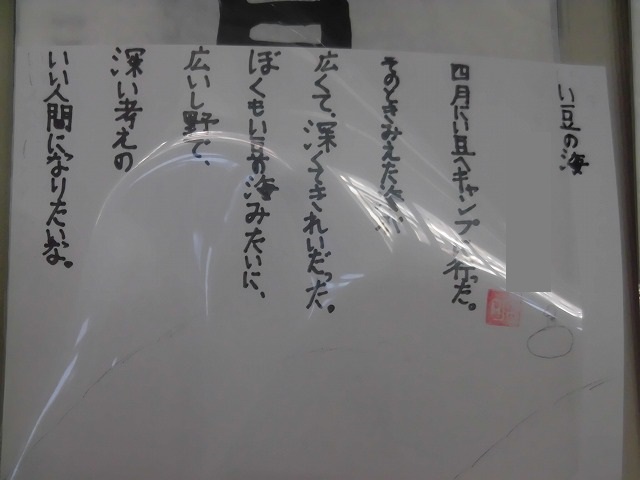 い豆の海
四月にい豆へキャンプに行った。
そのときみえた海が
広くて、深くてきれいだった。
ぼくもい豆の海みたいに、
広いし野で、
深い考えの
いい人間になりたいな。